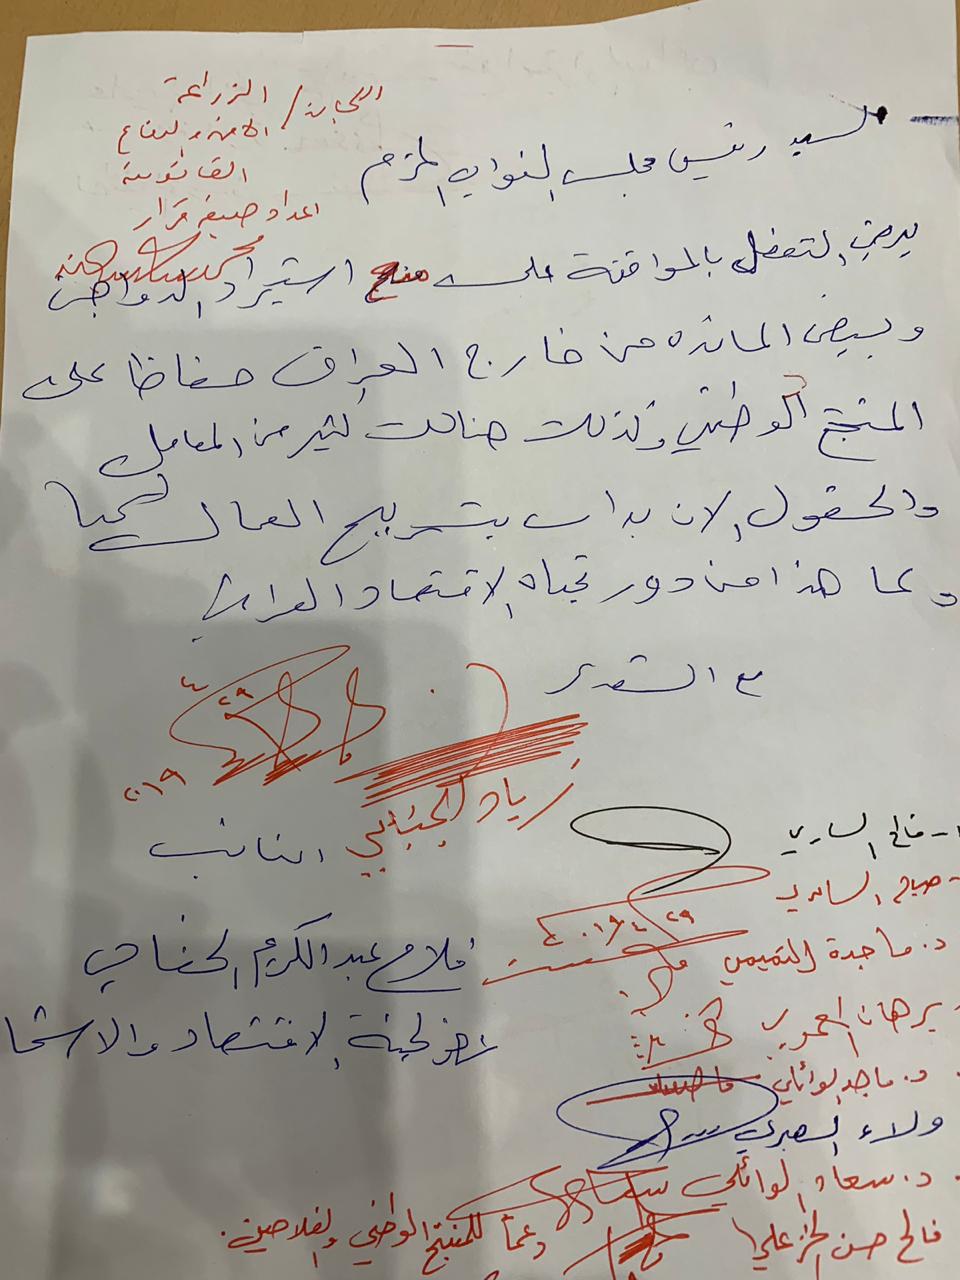 اللجان / الزراعة
الامن والدفاع
القانونية
اعداد صيغة قرار
السيد رئيس مجلس النواب المحترم
يرجى التفضل بالموافقة على منع استيراد الدواجن
وبيض المائده من خارج العراق حفاظا على
المنتج الوطني وكذلك هنالك كثير من المعامل
والحقول الان بدات بتسريح العمال
وما هذا من دور تجاه الاقتصاد العراقي
مع التقدير
٢٩ ٤
٢٠١٩
زياد الجنابي
النائب
فلاح عبد الكريم الخفاجي
عضو لجنة الاقتصاد والاستثما
١- فالح الساري
- صباح الساعدي
٢٩/٤/٢٠١٩
د. ماجدة التميمي
برهان المعموري
د. ماجد الوائلي
ولاء
د. سعاد الوائلي
فالح حسن الخزعلي
دعماً للمنتج الوطني والفلاحين.